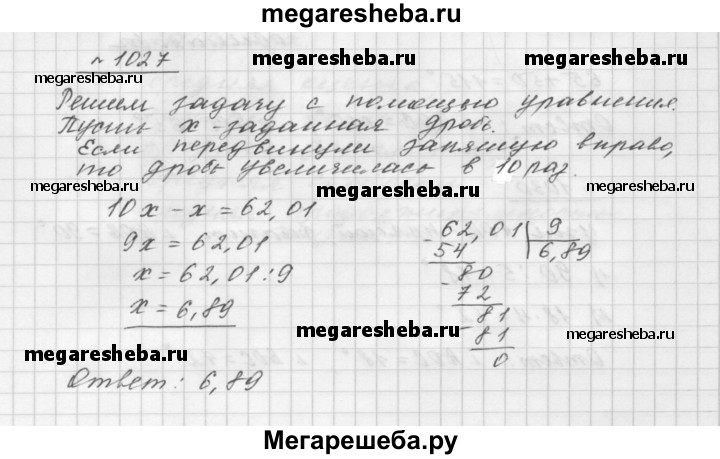 megaresheba.ru
№ 1027
megaresheba.ru
megaresheba.ru
megaresheba.ru
Решим задачу с помощью уравнения.
Пусть x - заданная дробь.
Если передвинули запятую вправо,
то дробь увеличилась в 10 раз.
megaresheba.ru
megaresheba.ru
megaresheba.ru
10x - x = 62,01
9x = 62,01
x = 62,01 : 9
x = 6,89
62,01 9
54 6,89
80
72
81
81
0
megaresheba.ru
megaresheba.ru
megaresheba.ru
Ответ: 6,89
Мегарешеба.ру